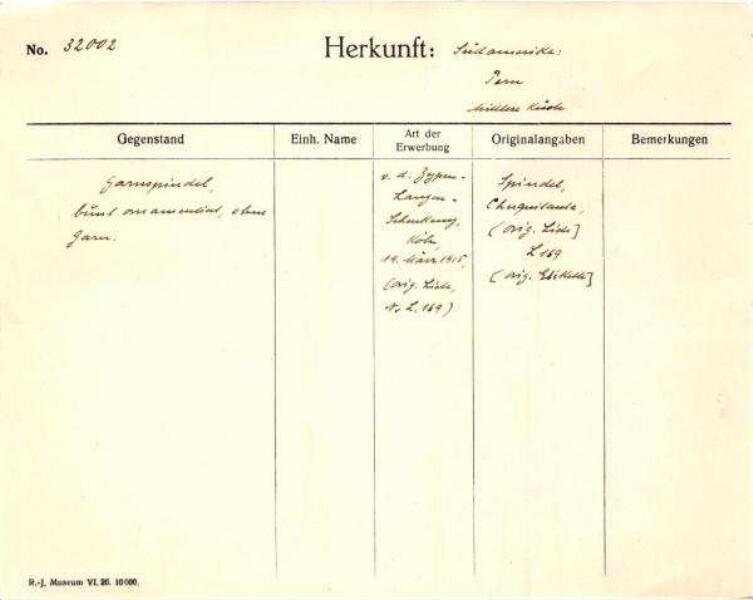 No. 32002
Herkunft: Südamerika:
Peru
Mittlere Küste
Gegenstand
Einh. Name
Art der Erwerbung
Originalangaben
Bemerkungen
Garnspindel,
bunt ornamentiert, ohne
Garn.
v. d. Zypen-
Langen-
Schenkung,
Köln,
19. März 1915,
(orig. Liste,
L. 169)
Spindel,
Chuquitanta,
(orig. Liste]
L 169
(orig. Etikette]
R.-J. Museum VI. 26. 10000.